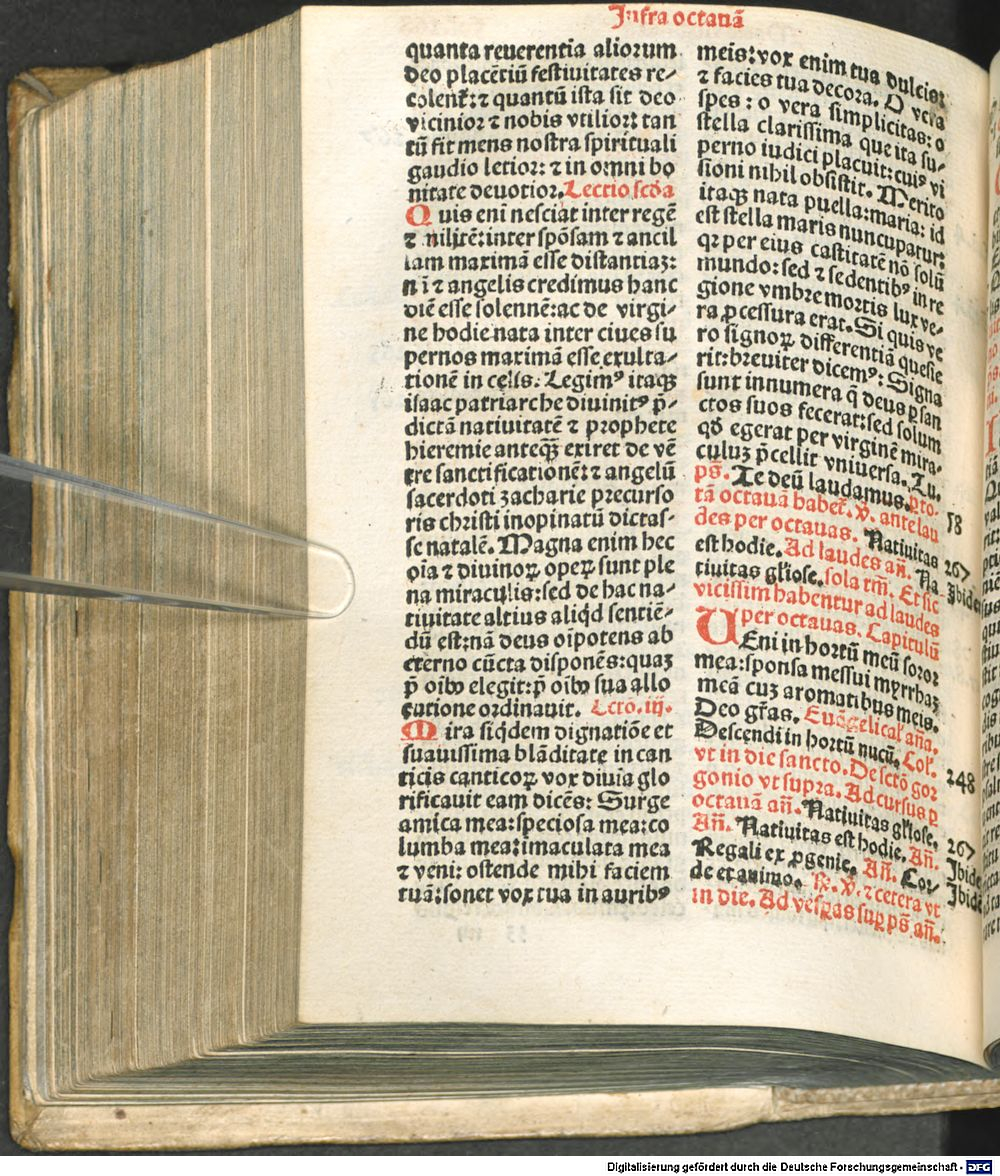 Infra octauā
quanta reuerentia aliorum
deo placētiū festiuitates re⸗
colent̄: ⁊ quantū ista sit deo
vicinior ⁊ nobis vtilior: tan
tū fit mens nostra spirituali
gaudio letior: ⁊ in omni bo
nitate deuotior. Lectio scd̄a
Quis eni nesciat inter regē
⁊ militē: inter spōsam ⁊ ancil
lam maximā esse distantiaz:
nī ⁊ angelis credimus hanc
diē esse solennē: ac de virgi⸗
ne hodie nata inter ciues su
pernos maximā esse exulta⸗
tionē in celis. Legimꝰ itaqꝫ
isaac patriarche diuinitꝰ p̄⸗
dictā natiuitatē ⁊ prophete
hieremie anteqꝫ̄ exiret de vē
tre sanctificationē: ⁊ angelū
sacerdoti zacharie precurso
ris christi inopinatū dictas⸗
se natalē. Magna enim hec
oīa ⁊ diuinoꝝ operꝝ sunt ple
na miraculis: sed de hac na⸗
tiuitate altius aliqd sentiē⸗
dū est: nā deus oīpotens ab
eterno cūcta disponēs: quaz
p̄ oībꝰ elegit: p̄ oībꝰ sua allo
cutione ordinauit. Lctō. iij.
Mira siqdem dignatiōe et
suauissima blāditate in can
ticis canticoꝝ vox diuīa glo
rificauit eam dicēs: Surge
amica mea: speciosa mea: co
lumba mea: immaculata mea
⁊ veni: ostende mihi faciem
tuā: sonet vox tua in auribꝰ
meis: vox enim tua dulcis:
⁊ facies tua decora. O vera
spes: o vera simplicitas: o
stella clarissima que ita su⸗
perno iudici placuit: cuiꝰ vi
sioni nihil obsistit. Merito
itaqꝫ nata puella: maria: id
est stella maris nuncupatur:
qꝛ per eius castitatē nō solū
mundo: sed ⁊ sedentibꝰ in re
gione vmbre mortis lux ve⸗
ra ꝓcessura erat. Si quis ve
ro signoꝝ differentiā quesie
rit: breuiter dicemꝰ: Signa
sunt innumera q̄ deus ꝑ san
ctos suos fecerat: sed solum
qđ egerat per virginē mira⸗
culuz p̄cellit vniuersa. Tu.
ps̄. Te deū laudamus. ꝓto⸗
tā octauā habet̄. V̄. ante lau
des per octauas. Natiuitas
58
est hodie. Ad laudes an̄. Na⸗
267
tiuitas gl̄iose. sola tm̄. Et sic
Ibidem
vicissim habentur ad laudes
per octauas. Capitulū
VEni in hortū meū soror
mea: sponsa messui myrrhaz
meā cuz aromatibus meis.
Deo gr̄as. Euāgelical̄ an̄a.
Descendi in hortū nucū. Col̄.
vt in die sancto. De sctō gor
248
gonio vt supra. Ad cursus ꝑ
octauā an̄. Natiuitas gl̄iose.
267
An̄. Natiuitas est hodie. An̄.
Ibidē
Regali ex ꝓgenie. An̄. Cor⸗
Ibidē
de et animo. R̄. V̄. ⁊ cetera vt
in die. Ad vesꝑas suꝑ ps̄ an̄.
Digitalisierung gefördert durch die Deutsche Forschungsgemeinschaft - DFG